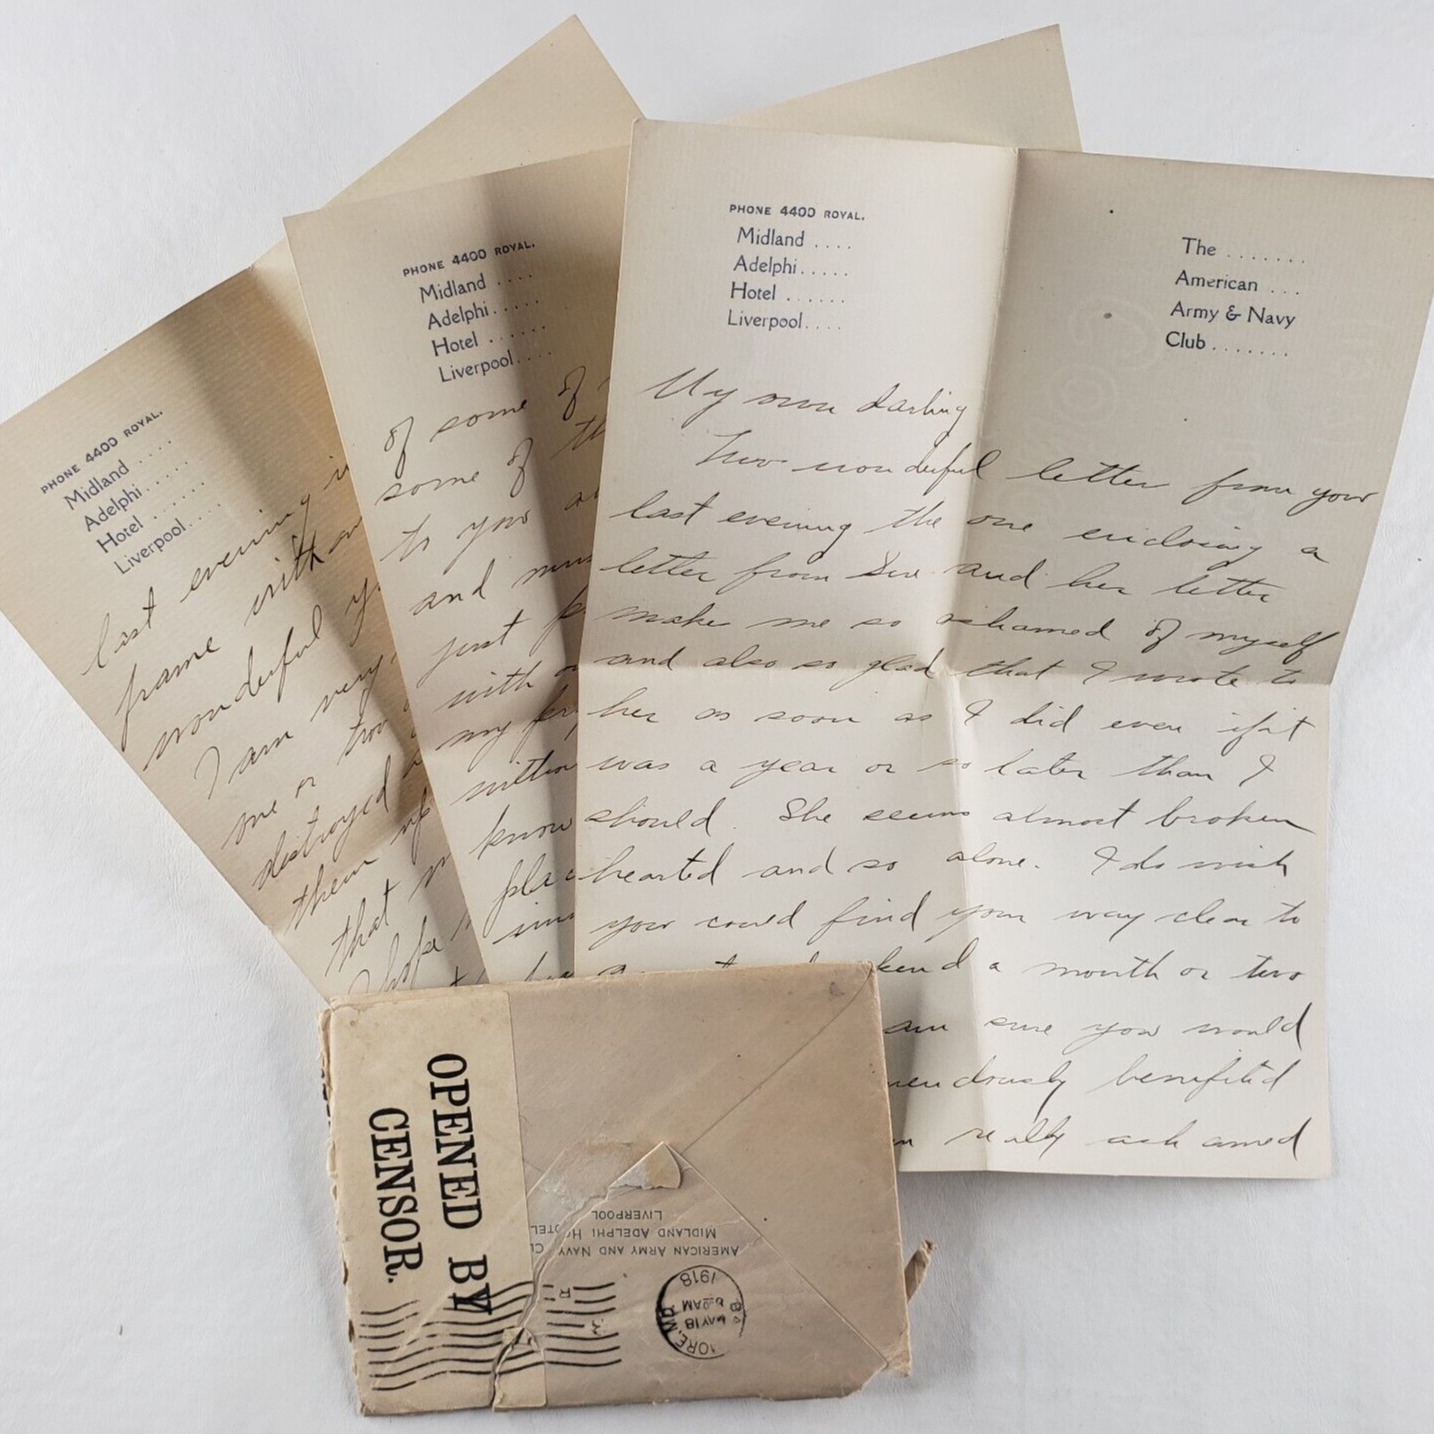 PHONE 4400 ROYAL.
Midland ....
Adelphi.....
Hotel ......
Liverpool....
last evening
frame with
wonderful
I am very
one or two
destroyed
them up
that
I hope
PHONE 4400 ROYAL.
Midland ....
Adelphi.....
Hotel ......
Liverpool....
of some of
some of
to your
and
just
with
my
written
know
PHONE 4400 ROYAL.
Midland ....
Adelphi.....
Hotel ......
Liverpool....
The .......
American ...
Army & Navy
Club .......
My own darling
Two wonderful letter from your
last evening the one enclosing a
letter from Sue and her letter
make me so ashamed of myself
and also so glad that I wrote to
her as soon as I did even if it
was a year or so later than I
should. She seems almost broken
hearted and so alone. I do wish
you could find your way clear to
a month or two
am sure you would
benefited
really ashamed
OPENED BY
CENSOR.
AMERICAN ARMY AND NAVY
MIDLAND ADELPHI HOTEL
LIVERPOOL
MAY 18
AM
1918